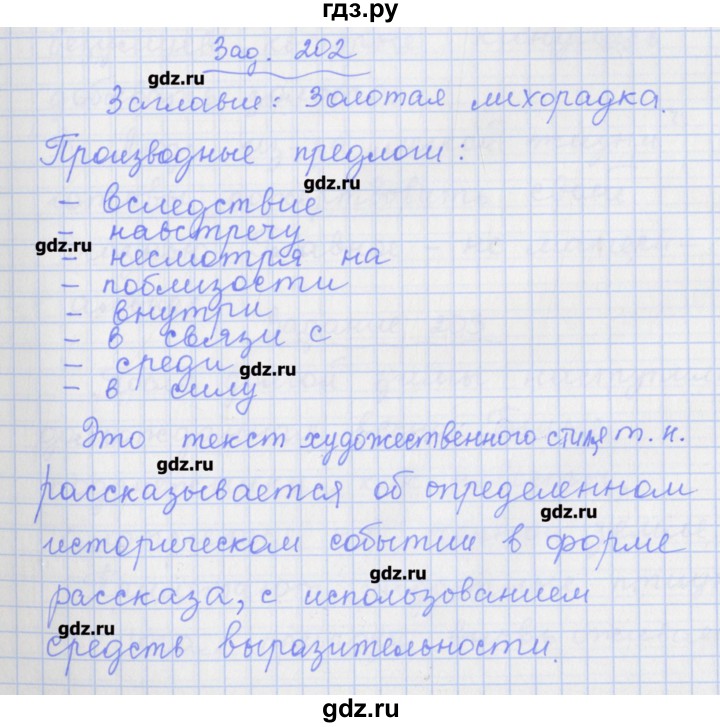 гдз.ру
Зад. 202
gdz.ru
Заглавие: Золотая лихорадка.
Производные предлоги:
gdz.ru
– вследствие
– навстречу
gdz.ru
– несмотря на
– поблизости
– внутри
– в связи с
– среди
gdz.ru
– в силу
Это текст художественного стиля т. к.
gdz.ru
рассказывается об определенном
gdz.ru
историческом событии в форме
gdz.ru
рассказа, с использованием
gdz.ru
средств выразительности.
gdz.ru